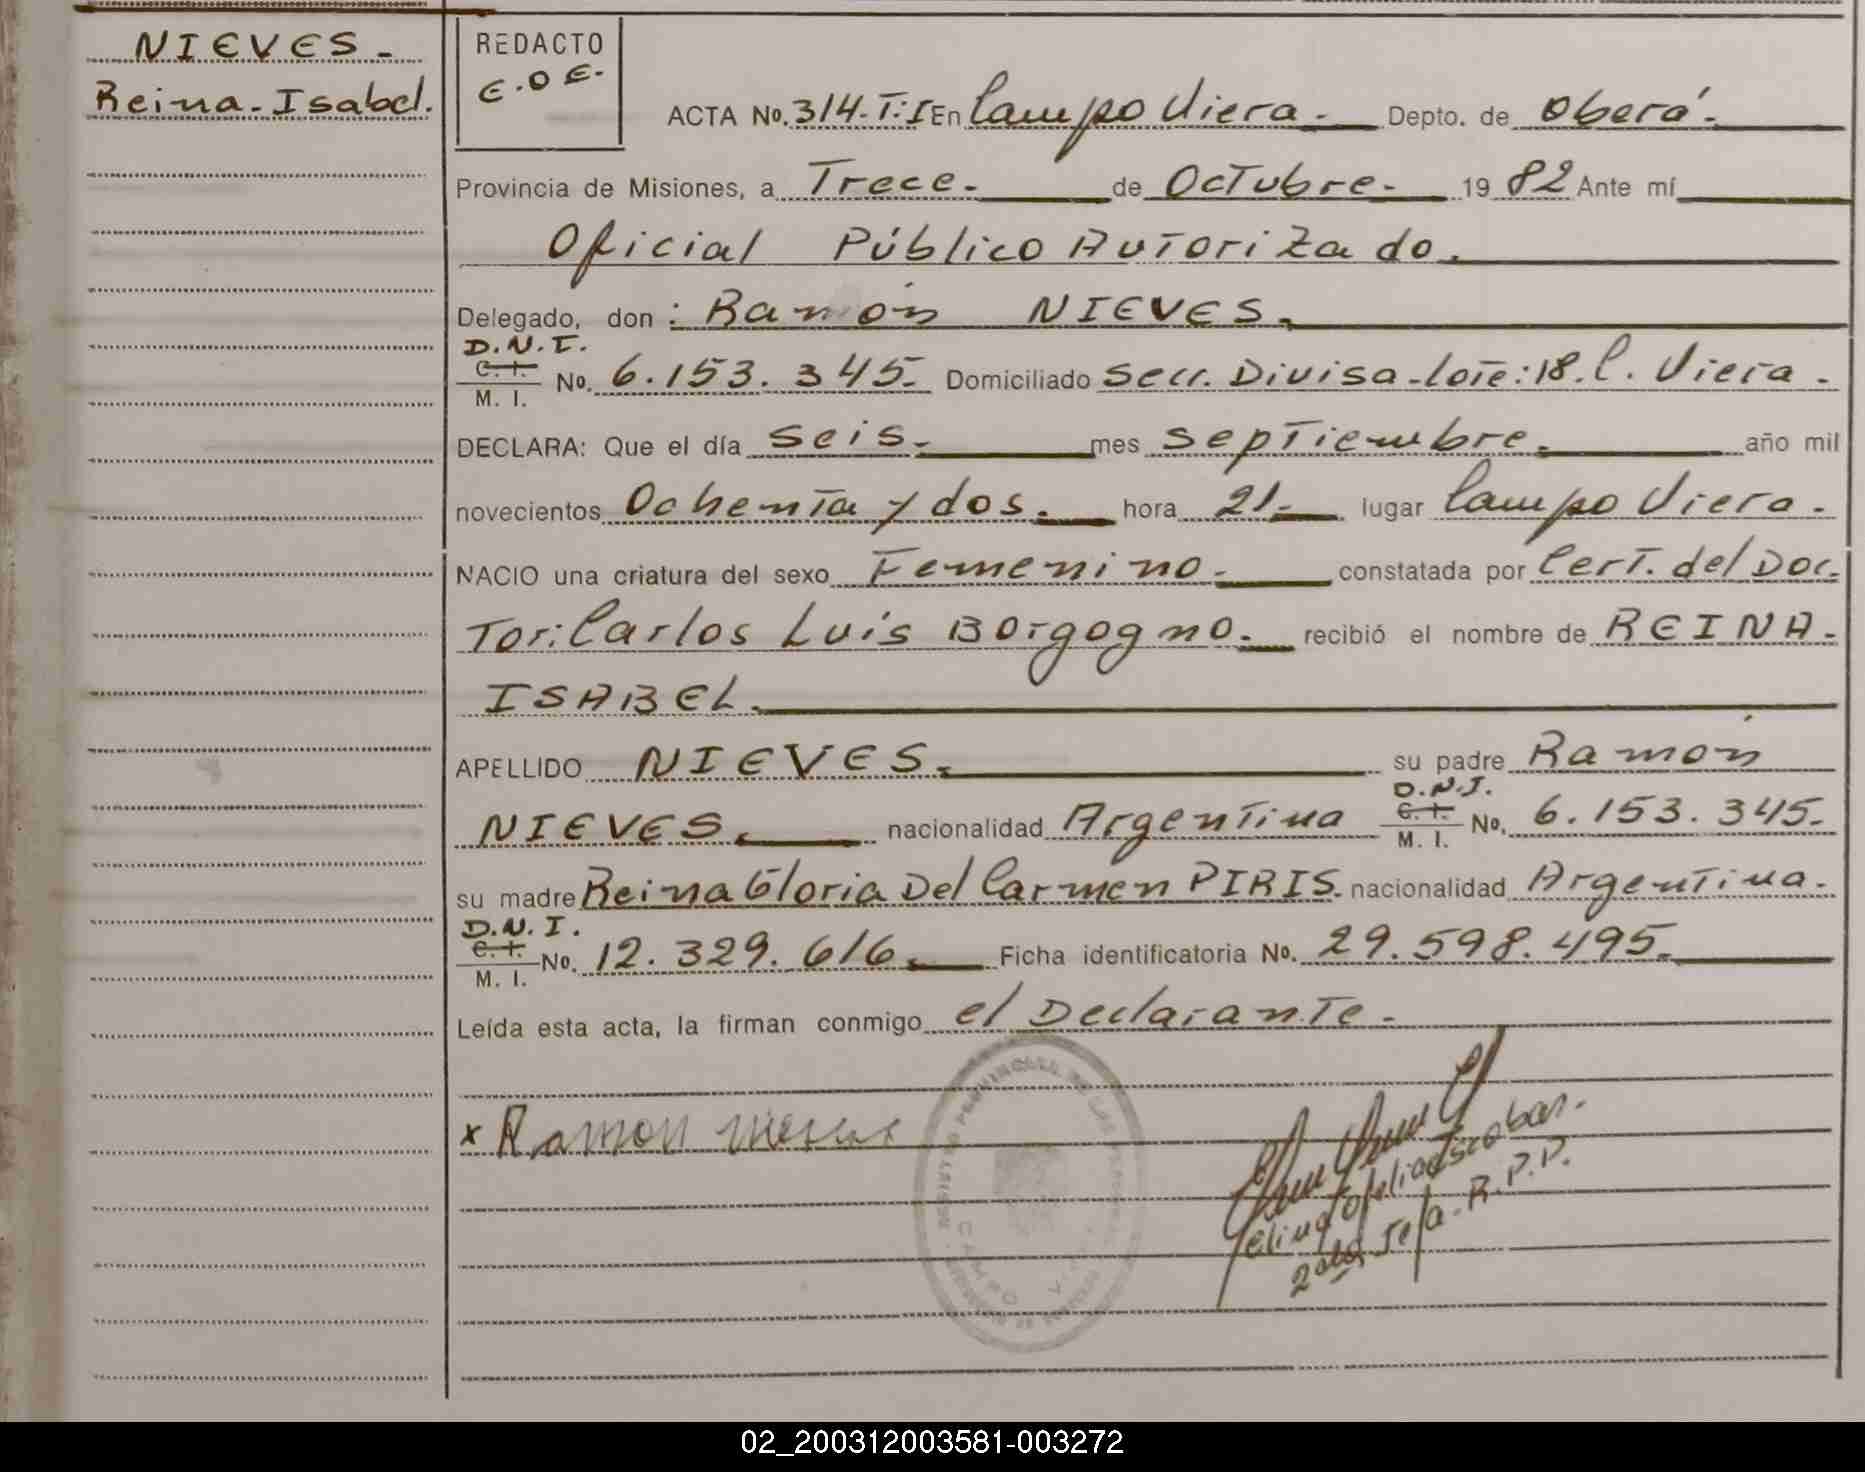 NIEVES.
Reina-Isabel.
REDACTO
E.O.E.
ACTA No. 314-T:I En Campo Viera.- Depto. de Oberá.-
Provincia de Misiones, a Trece.- de Octubre.- 1982 Ante mí
Oficial Público Autorizado.
Delegado, don: Ramón NIEVES.
D.N.I.
C. I.
M. I. No. 6.153.345.- Domiciliado Secc. Divisa-Lote:18.C. Viera.
DECLARA: Que el día seis.- mes septiembre.- año mil
novecientos Ochenta y dos.- hora 21.- lugar Campo Viera.
NACIO una criatura del sexo Femenino.- constatada por Cert. del Doc-
Tor: Carlos Luis Borgogno.- recibió el nombre de REINA.
ISABEL.
APELLIDO NIEVES.- su padre Ramón
NIEVES.- nacionalidad Argentina D.N.I. C. I. M. I. No. 6.153.345.
su madre Reina Gloria Del Carmen PIRIS. nacionalidad Argentina.
D.N.I.
C. I.
M. I. No. 12.329.616.- Ficha identificatoria No. 29.598.495.-
Leída esta acta, la firman conmigo el Declarante.-
x Ramon nieves
Escobar.
Jefa. R.P.P.
CAMPO
02_200312003581-003272